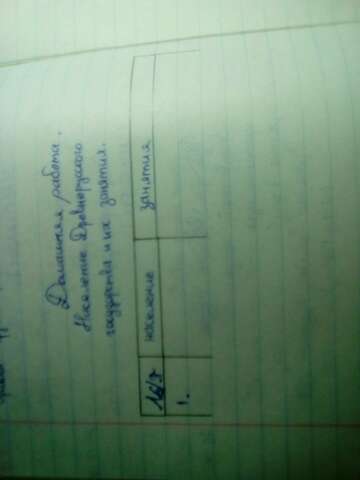 Домашняя работа.
Население Древнерусского
государства и их занятия.
население занятия
1.